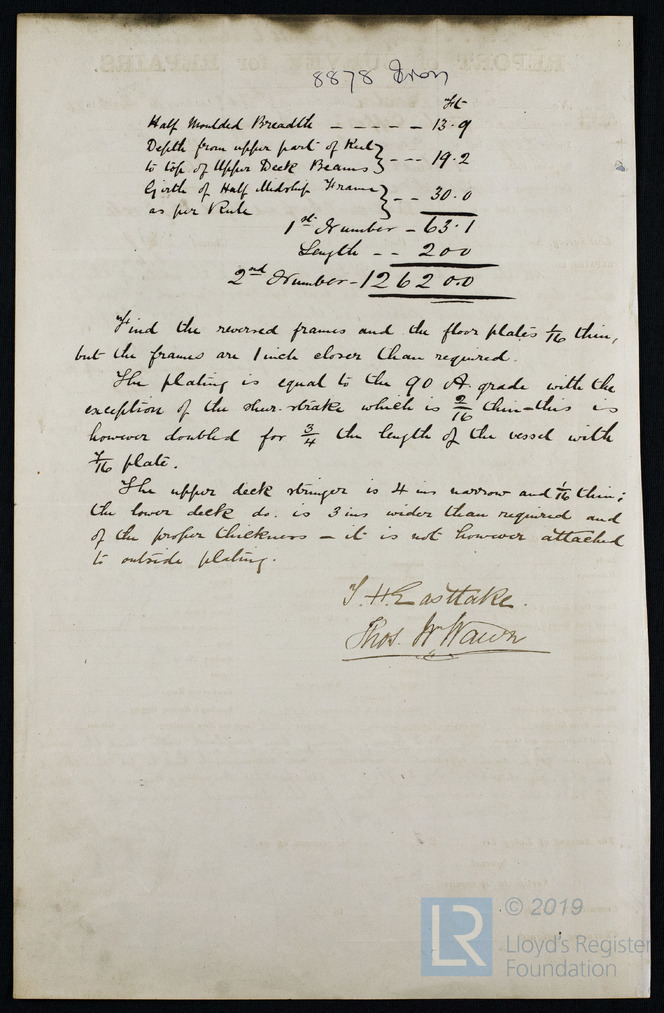 8878 Iron
Ft
Half Moulded Breadth - - - - - 13.9
Depth from upper part of Keel
to top of Upper Deck Beams } - - - 19.2
Girth of Half Midship Frame
as per Rule } - - 30.0
1st Number - 63.1
Length - - 200
2nd Number - 12620.0
Find the reversed frames and the floor plates 1/16 thin,
but the frames are 1 inch closer than required.
The plating is equal to the 90 A. grade with the
exception of the sheer-strake which is 2/16 thin - this is
however doubled for 3/4 the length of the vessel with
7/16 plate.
The upper deck stringer is 4 ins narrow and 1/16 thin;
the lower deck do. is 3 ins wider than required and
of the proper thickness - it is not however attached
to outside plating.
T. H. Eastlake.
Thos. Wm Wawn
© 2019
LR
Lloyd's Register
Foundation